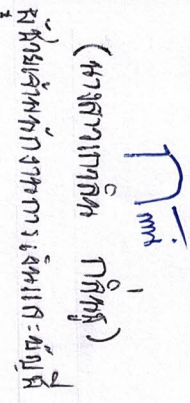 (นางสาวเกวลิน กลิ่นชู)
ผู้ช่วยเจ้าพนักงานการเงินและบัญชี